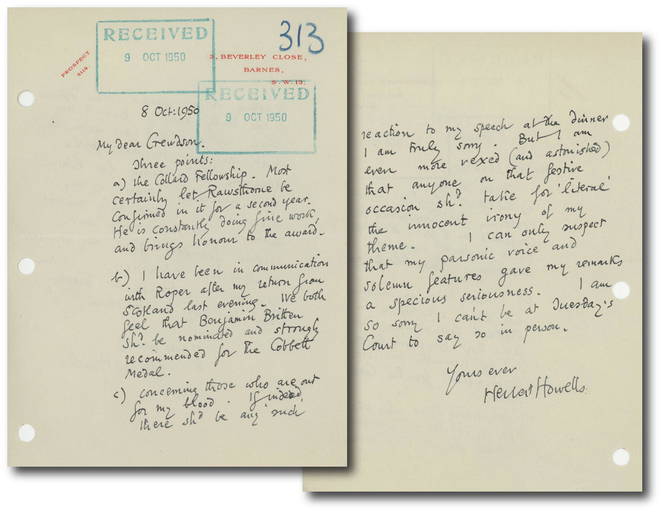 313
RECEIVED
9 OCT 1950
PROSPECT
3, BEVERLEY CLOSE,
BARNES,
S.W.13.
RECEIVED
9 OCT 1950
8 Oct: 1950
My dear Crewdson.
Three points:
a) The Collard Fellowship. Most
certainly let Rawsthorne be
confirmed in it for a second year.
He is constantly doing fine work,
and brings honour to the award.
b) I have been in communication
with Roper after my return from
Scotland last evening. We both
feel that Benjamin Britten
shd. be nominated and strongly
recommended for the Cobbett
Medal.
c) concerning those who are out
for my blood. If indeed,
there shd be any such
reaction to my speech at the dinner
I am truly sorry. But I am
even more vexed (and astonished)
that anyone on that festive
occasion shd. take for 'literal'
the innocent irony of my
theme. I can only suspect
that my parsonic voice and
solemn features gave my remarks
a specious seriousness. I am
so sorry I can't be at Tuesday's
Court to say so in person.
Yours ever
Herbert Howells.